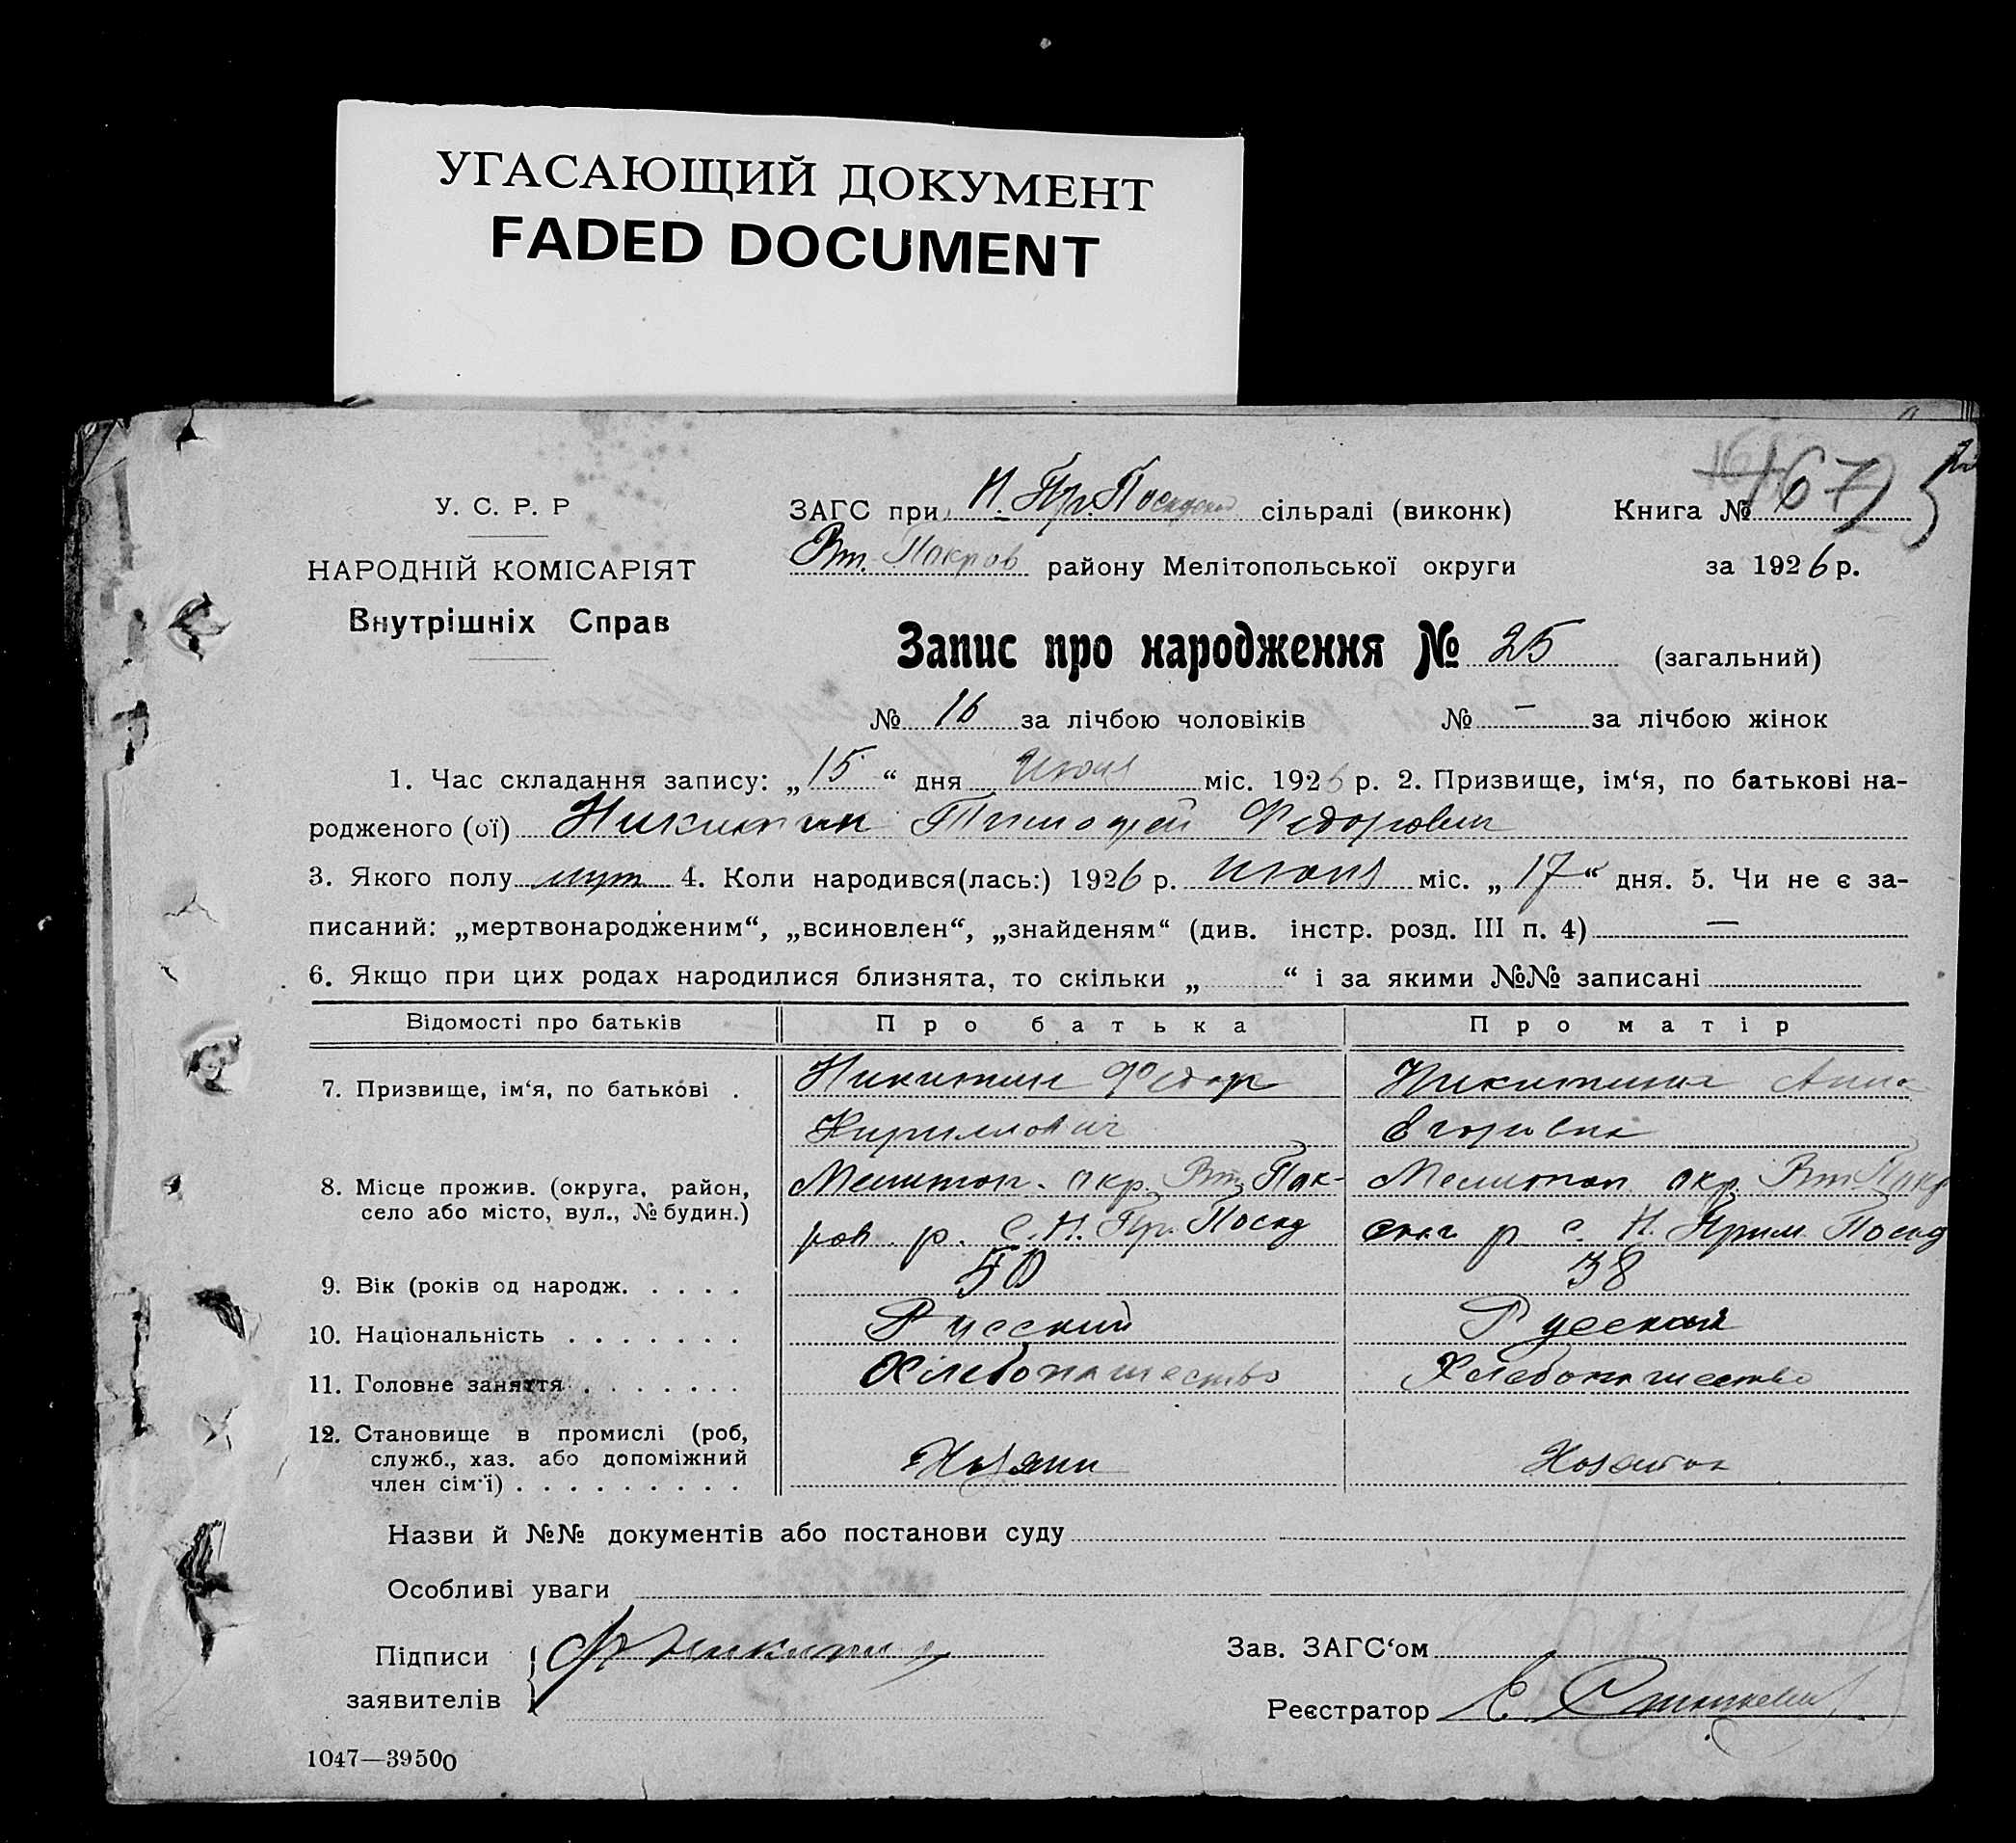 УГАСАЮЩИЙ ДОКУМЕНТ
FADED DOCUMENT
У. С. Р. Р
НАРОДНІЙ КОМІСАРІЯТ
Внутрішніх Справ
ЗАГС при Н. Пр. Посадском сільраді (виконк)
Вт. Покров району Мелітопольської округи
Книга № 167
за 1926 р.
Запис про народження № 25 (загальний)
№ 16 за лічбою чоловіків № — за лічбою жінок
1. Час складання запису: „15“ дня Июля міс. 1926 р. 2. Призвище, ім‘я, по батькові на-
родженого (ої) Никитин Тимофей Федорович
3. Якого полу муж 4. Коли народився(лась:) 1926 р. июня міс. „17“ дня. 5. Чи не є за-
писаний: „мертвонародженим“, „всиновлен“, „знайденям“ (див. інстр. розд. III п. 4) —
6. Якщо при цих родах народилися близнята, то скільки „ “ і за якими №№ записані
Відомості про батьків Про батька Про матір
7. Призвище, ім‘я, по батькові . Никитин Федор Никитина Анна
Кириллович Егоровна
8. Місце прожив. (округа, район, Мелитоп. окр. Вт. Пок- Мелитоп окр. Вт Покр
село або місто, вул., № будин.) ров. р. С. Н. Пр. Посад ског р с. Н. Прим. Посад
9. Вік (років од народж. . . . . 50 38
10. Національність . . . . . . . Русский Русская
11. Головне заняття . . . . . . . Хлебопашество Хлебопашество
12. Становище в промислі (роб,
служб., хаз. або допоміжний Хозяин Хозяйка
член сім‘ї) . . . . . . . . .
Назви й №№ документів або постанови суду
Особливі уваги
Підписи Ф Никитин Зав. ЗАГС‘ом
заявителів Реєстратор Е.
1047—39500